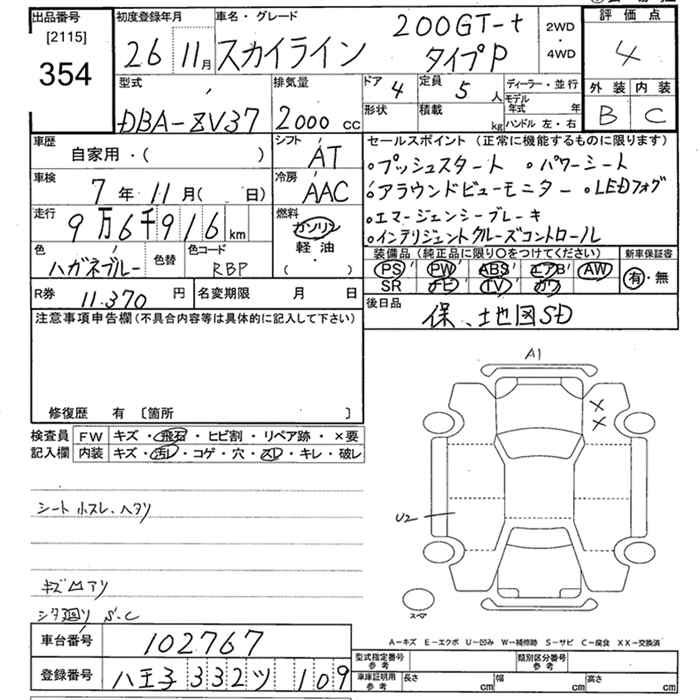 出品番号 初度登録年月 車名・グレード 評価点
[2115]
354
26 11月 スカイライン 200GT-t タイプP 2WD・4WD 4
型式 排気量 ドア 4 定員 5人 ディーラー・並行 外装 内装
DBA-ZV37 2000cc 形状 積載 kg モデル年式 年 ハンドル 左・右 B C
車歴 自家用・( ) シフト AT セールスポイント (正常に機能するものに限ります)
車検 7年11月( 日) 冷房 AAC
。プッシュスタート 。パワーシート
。アラウンドビューモニター 。LEDフォグ
走行 9万6千916km 燃料 ガソリン 軽油・( )
。エマージェンシーブレーキ
。インテリジェントクルーズコントロール
色 ハガネブルー 色替 色コード RBP
装備品 (純正品に限り〇をつけてください) 新車保証書
PS PW ABS エアB AW 有・無
SR ナビ TV カワ
R券 11.370円 名変期限 月 日 後日品
保、地図SD
注意事項申告欄(不具合内容等は具体的に記入して下さい)
修復歴 有 〔箇所 〕
検査員 FW キズ・飛石・ヒビ割・リペア跡・×要
記入欄 内装 キズ・汚レ・コゲ・穴・スレ・キレ・破レ
A1
X
X
シートホスレ、ヘタリ
U2
キズ凹アリ
シタ廻リ S.C
スペア
A-キズ E-エクボ U-凹み W-補修跡 S-サビ C-腐食 XX-交換済
車台番号 102767
型式指定番号 参考 類別区分番号 参考
登録番号 八王子 332 ツ 109
車庫証明用 参考 長さ cm 幅 cm 高さ cm